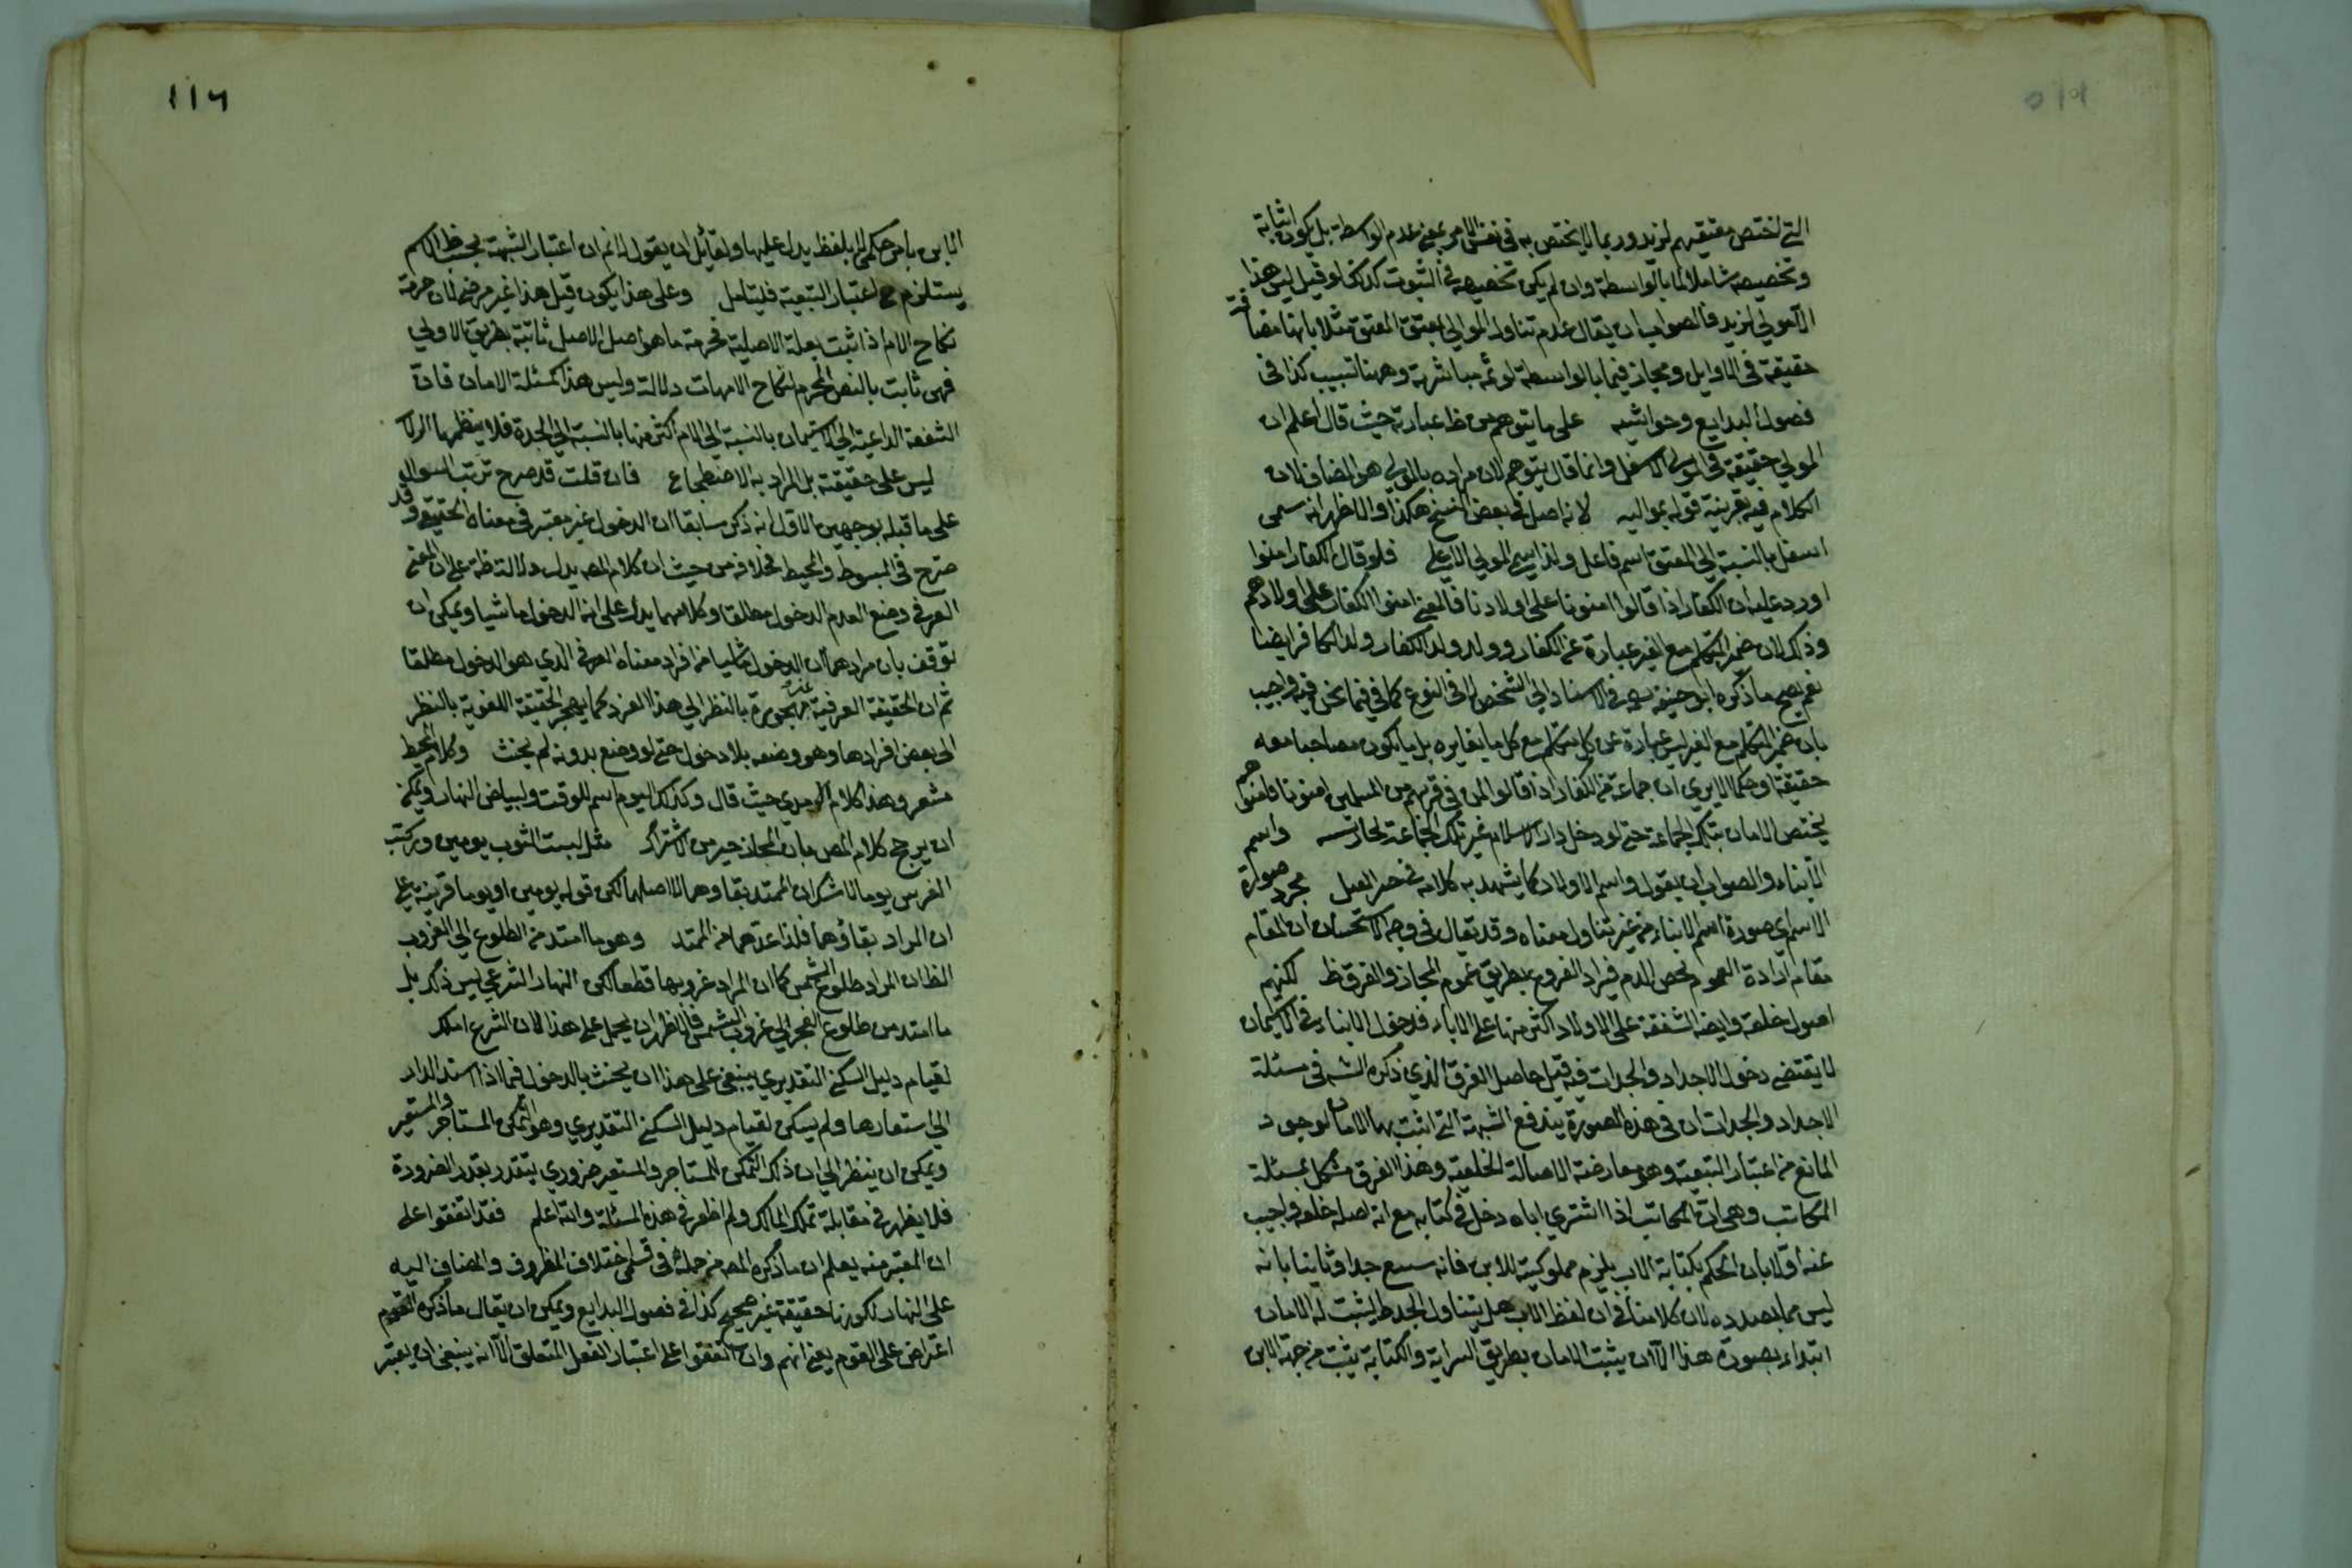 التي تختص معتقيهم لزيد وربما لا يختص به في نفس الامر بمعني عدم الواسطة بل يكون اثباته
وتخصيصه شاملا لما بالواسطة وان لم يكن تخصيصه في الثبوت كذلك لو قيل ليس هذا
الا مولي لزيد فالصواب ان يقال عدم تناول الموالي لمعتق المعتق مثلا بانها مضافة
حقيقة في الاوايل ومجاز فيما بالواسطة لوثمه مباشرة وههنا تسبيب كذا في
فصول البدايع وحواشيه على ما يتوهم من ظ عبارته حيث قال اعلم ان
المولي حقيقة في المولي الاسفل وانما قال يتوهم لان مراده بالمولي هو المضاف لان
الكلام فيه بقرينة قوله بمواليه لانه اصل في بعض النسخ هكذا والاظهر انه سمى
اسفل بالنسبة الي المعتق اسم فاعل ولذا سمي المولي الاعلي فلو قال الكفار امنوا
اورد عليه ان الكفار اذا قالوا امنونا على اولادنا فالمعني امنوا الكفار على اولادهم
وذلك لان ضمير المتكلم مع الغير عبارة عن الكفار وولد ولد الكفار ولد الكافر ايضا
نعم يصح ما ذكره ابو حنيفة في الاسناد الي الشخص لا في النوع كما في فيما نحن فيه واجيب
بان ضمير المتكلم مع الغير ليس عبارة عن كل متكلم مع كل ما يغايره بل ما يكون مصاحبا معه
حقيقة او حكما الا يري ان جماعة من الكفار اذا قالوا لمن في قربهم من المسلمين امنونا فامنوهم
يختص الامان بتلك الجماعة حتي لو دخل دار الاسلام غير تلك الجماعة لحاز واسم
الابناء والصواب ان يقول واسم الاولاد كما يشهد به كلامه في مجرد صورة
الاسم اي صورة اسم الابناء من غير تناول معناه وقد يقال في وجه الاستحسان ان المقام
مقام ارادة العموم لحصن الدم فيراد الفروع بطريق عموم المجاز والفرق ظ لكنهم
اصول خلقة وايضا الشفقة على الاولاد اكثر منها على الاباء فدخول الابناء في الاستيمان
لا يقتضي دخول الاجداد والجدات فيه قيل حاصل الفرق الذي ذكره الشه في مسئلة
الاجداد والجدات ان في هذه الصورة يندفع الشبهة التي اثبت بها الامان لوجود
المانع من اعتبار التبعية وهو معارضة الاصالة الخلقية وهذا الفرق مشكل بمسئلة
المكاتب وهي ان المكاتب اذا اشتري اباه دخل في كتابه مع انه اصله خلقة واجيب
عنه اولا بان الحكم بكتابة الاب يلزم مملوكيته للابن فانه سبيع جدا وثانيا بانه
ليس مما بصدده لان كلامنا في ان لفظ الاب هل يتناول الجد ظ ليثبت له الامان
ابتداء بصورة هذا الا ان يثبت الامان بطريق السراية والكتابة يثبت من جهة الابن
١١٦
الابن بامر حكمي لا بلفظ يدل عليها ولقائل ان يقول لا نم ان اعتبار الشبهة بحسب ظ الاسم
يستلزم مع اعتبار التبعية فليتامل وعلى هذا يكون قيل هذا غير مرضي لان حرمة
نكاح الام اذا ثبت بعلة الاصلية فحرمة ما هو اصل الاصل ثابتة بطريق الاولي
فهي ثابت بالنص المحرم لنكاح الامهات دلالة وليس هذا كمسئلة الامان فان
الشفقة الداعية الي الاستيمان بالنسبة الي الام اكثر منها بالنسبة الي الجدة فلا ينظمها
ليس على حقيقته بل المراد به الاضطجاع فان قلت قد صرح ترتب السوال
على ما قبله بوجهين الاول انه ذكر سابقا ان الدخول غير معتبر في معناه الحقيقي وقد
صرح في المبسوط والمحيط بخلافه من حيث ان كلام المص يدل دلالة ظة على ان المعنى
العرفي وضع القدم الدخول مطلقا وكلامهما يدل على انه الدخول ماشيا ويمكن ان
توقف بان مرادهما ان الدخول ماشيا من افراد معناه العرفي الذي هو الدخول مطلقا
ثم ان الحقيقة العرفية غير مهجورة بالنظر الي هذا الفرد كما يهجر الحقيقة اللغوية بالنظر
الى بعض افرادها وهو وضعه بلا دخول حتي لو وضع بدونه لم يحنث وكلام المحيط
مشعر وهذا كلام حيث قال وكذلك اليوم اسم للوقت ولبياض النهار ويمكن
ان يرجح كلام المص بان المجاز خير من الاشتراك مثل لبست الثوب يومين وركبت
الفرس يوما لا شك ان الممتد بقاوهما لا اصلهما لكن قوله يومين او يوما قرينة على
ان المراد بقاؤهما فلذا عدهما من الممتد وهو ما امتد من الطلوع الي الغروب
الظ ان المراد طلوع الشمس كما ان المراد غروبها قطعا لكن النهار الشرعي ليس ذلك بل
ما امتد من طلوع الفجر الي غروب الشمس فالاظهر ان يحمل على هذا لان الشرع املك
لقيام دليل السكني التقديري ينبغي على هذا ان يحنث بالدخول فيما اذا استد الدار
الي استعارها ولم يسكن لقيام دليل السكني التقديري وهو التمكن المستاجر والمستعير
ويمكن ان ينظر الي ان ذلك التمكن للمستاجر والمستعير ضروري يتقدر بقدر الضرورة
فلا يظهر في مقابلة تملك المالك ولم اظفر في هذه المسئلة والله اعلم فقد اتفقوا على
ان المعتبر منه يعلم ان ما ذكره المص من جملة في قسمي اختلاف المظروف والمضاف اليه
على النهار لكونها حقيقة غير صحيح كذا في فصول البدايع ويمكن ان يقال ما ذكره القوم
اعتراض على القوم يعني انهم وان اتفقوا على اعتبار الفعل المتعلق الا انه ينبغي ان يعتبر